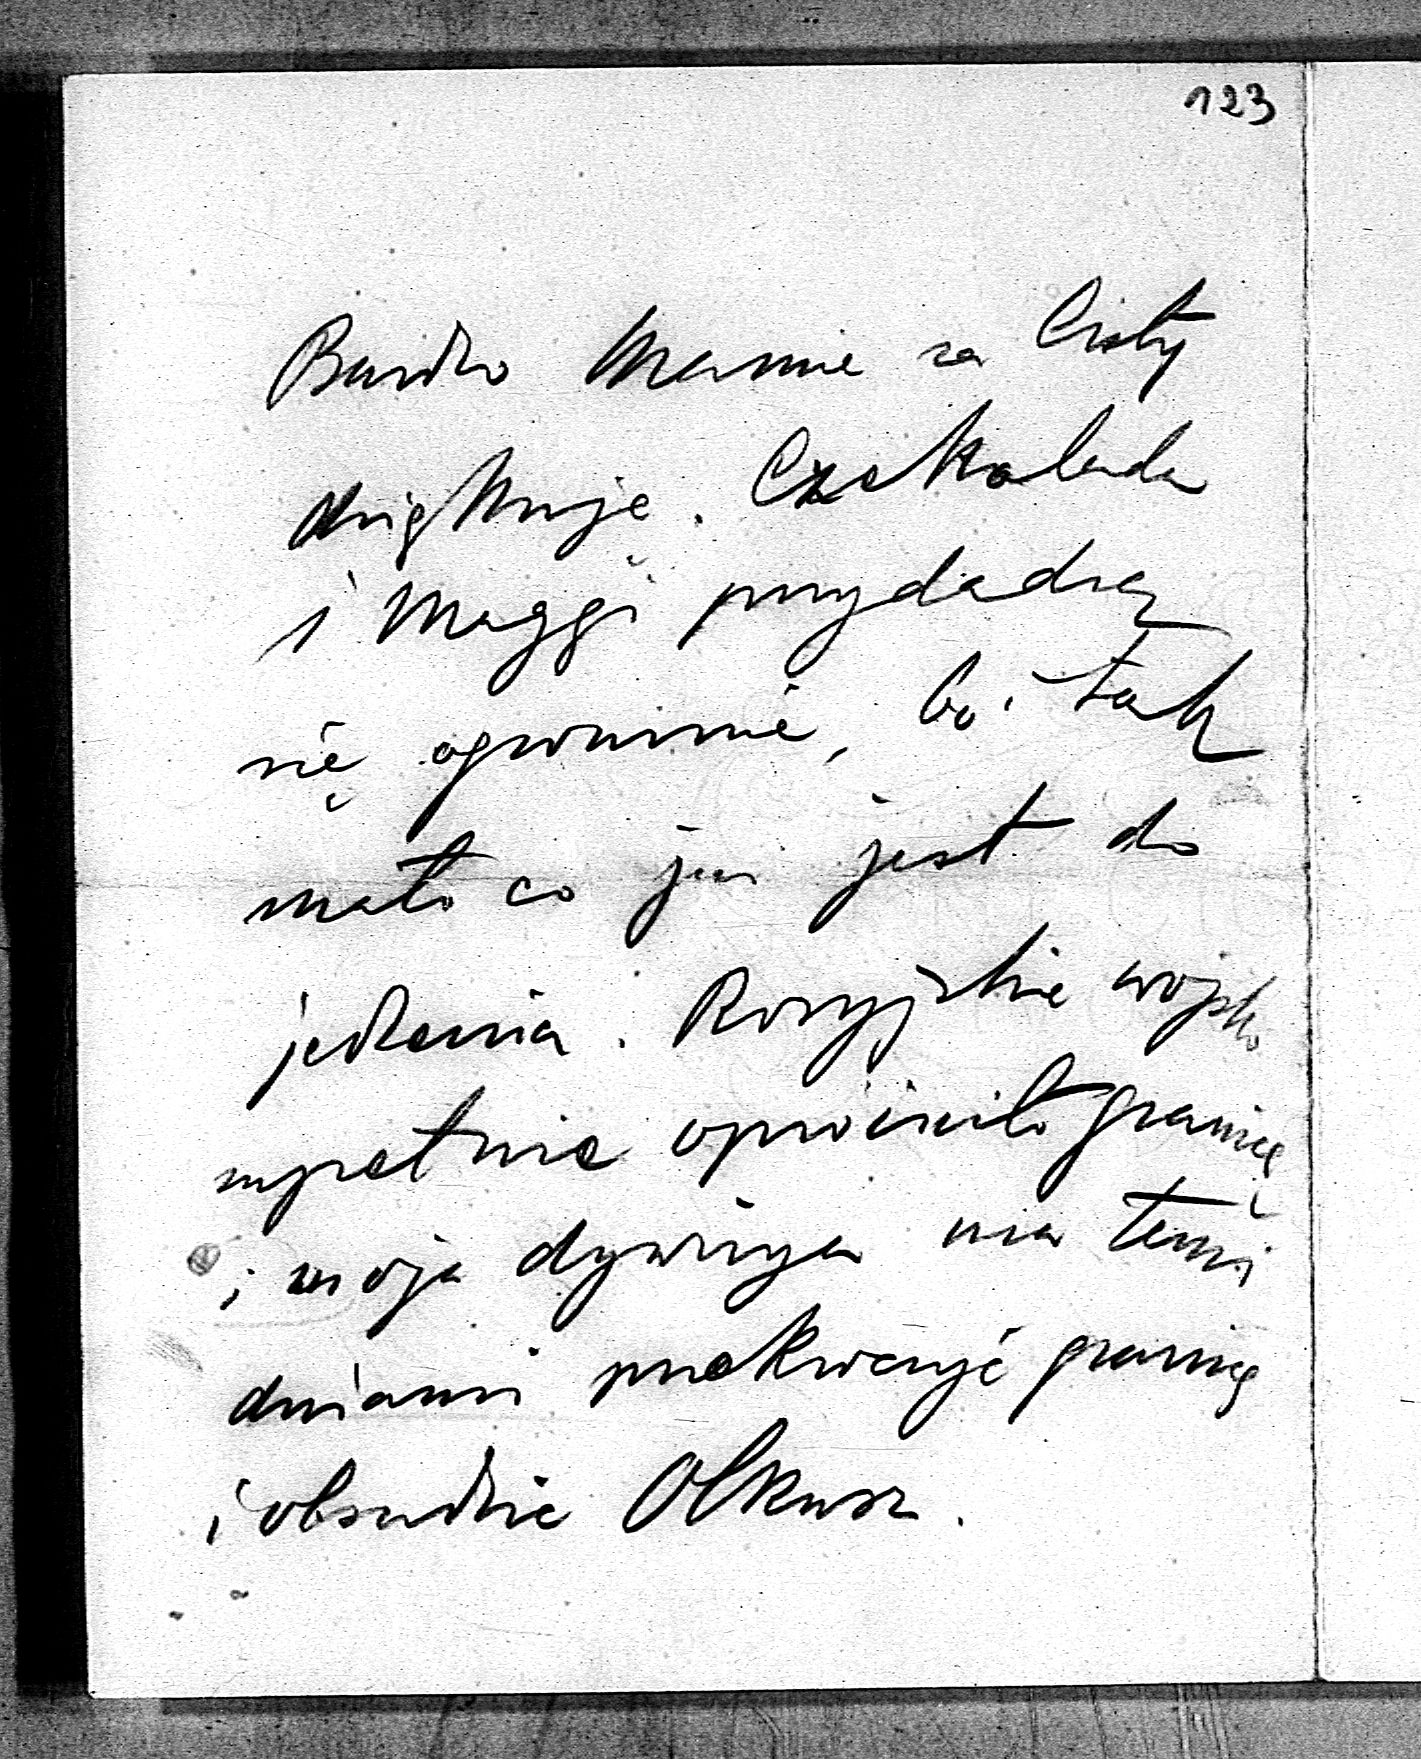 123
Bardzo Mamie za listy
dziękuję. Czekolada
i Maggi przydadzą
się ogromnie, bo i tak
mało co już jest do
jedzenia. Rosyjskie wojsko
zupełnie opróżniło granicę
i moja dywizya ma temi
dniami przekroczyć granicę
i obsadzić Olkusz.